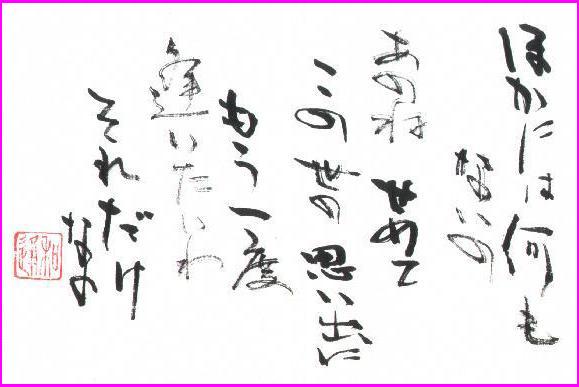 ほかには何も
ないの
あのね せめて
この世の思い出に
もう一度
逢いたいわ
それだけ
なの